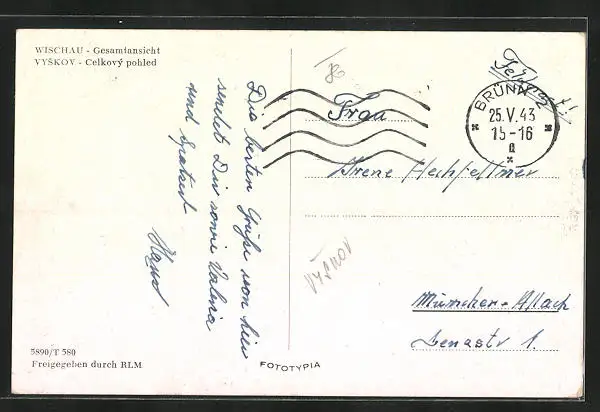 WISCHAU - Gesamtansicht
VYŠKOV - Celkový pohled
Die besten Grüße von hier
sendet Dir sowie
und
Hans
5890/T 580
Freigegeben durch RLM
FOTOTYPIA
Feldpost!
BRÜNN 2
25.V.43
15-16
a
Frau
Irene Hechfellner
Vyškov
München-Allach
1.